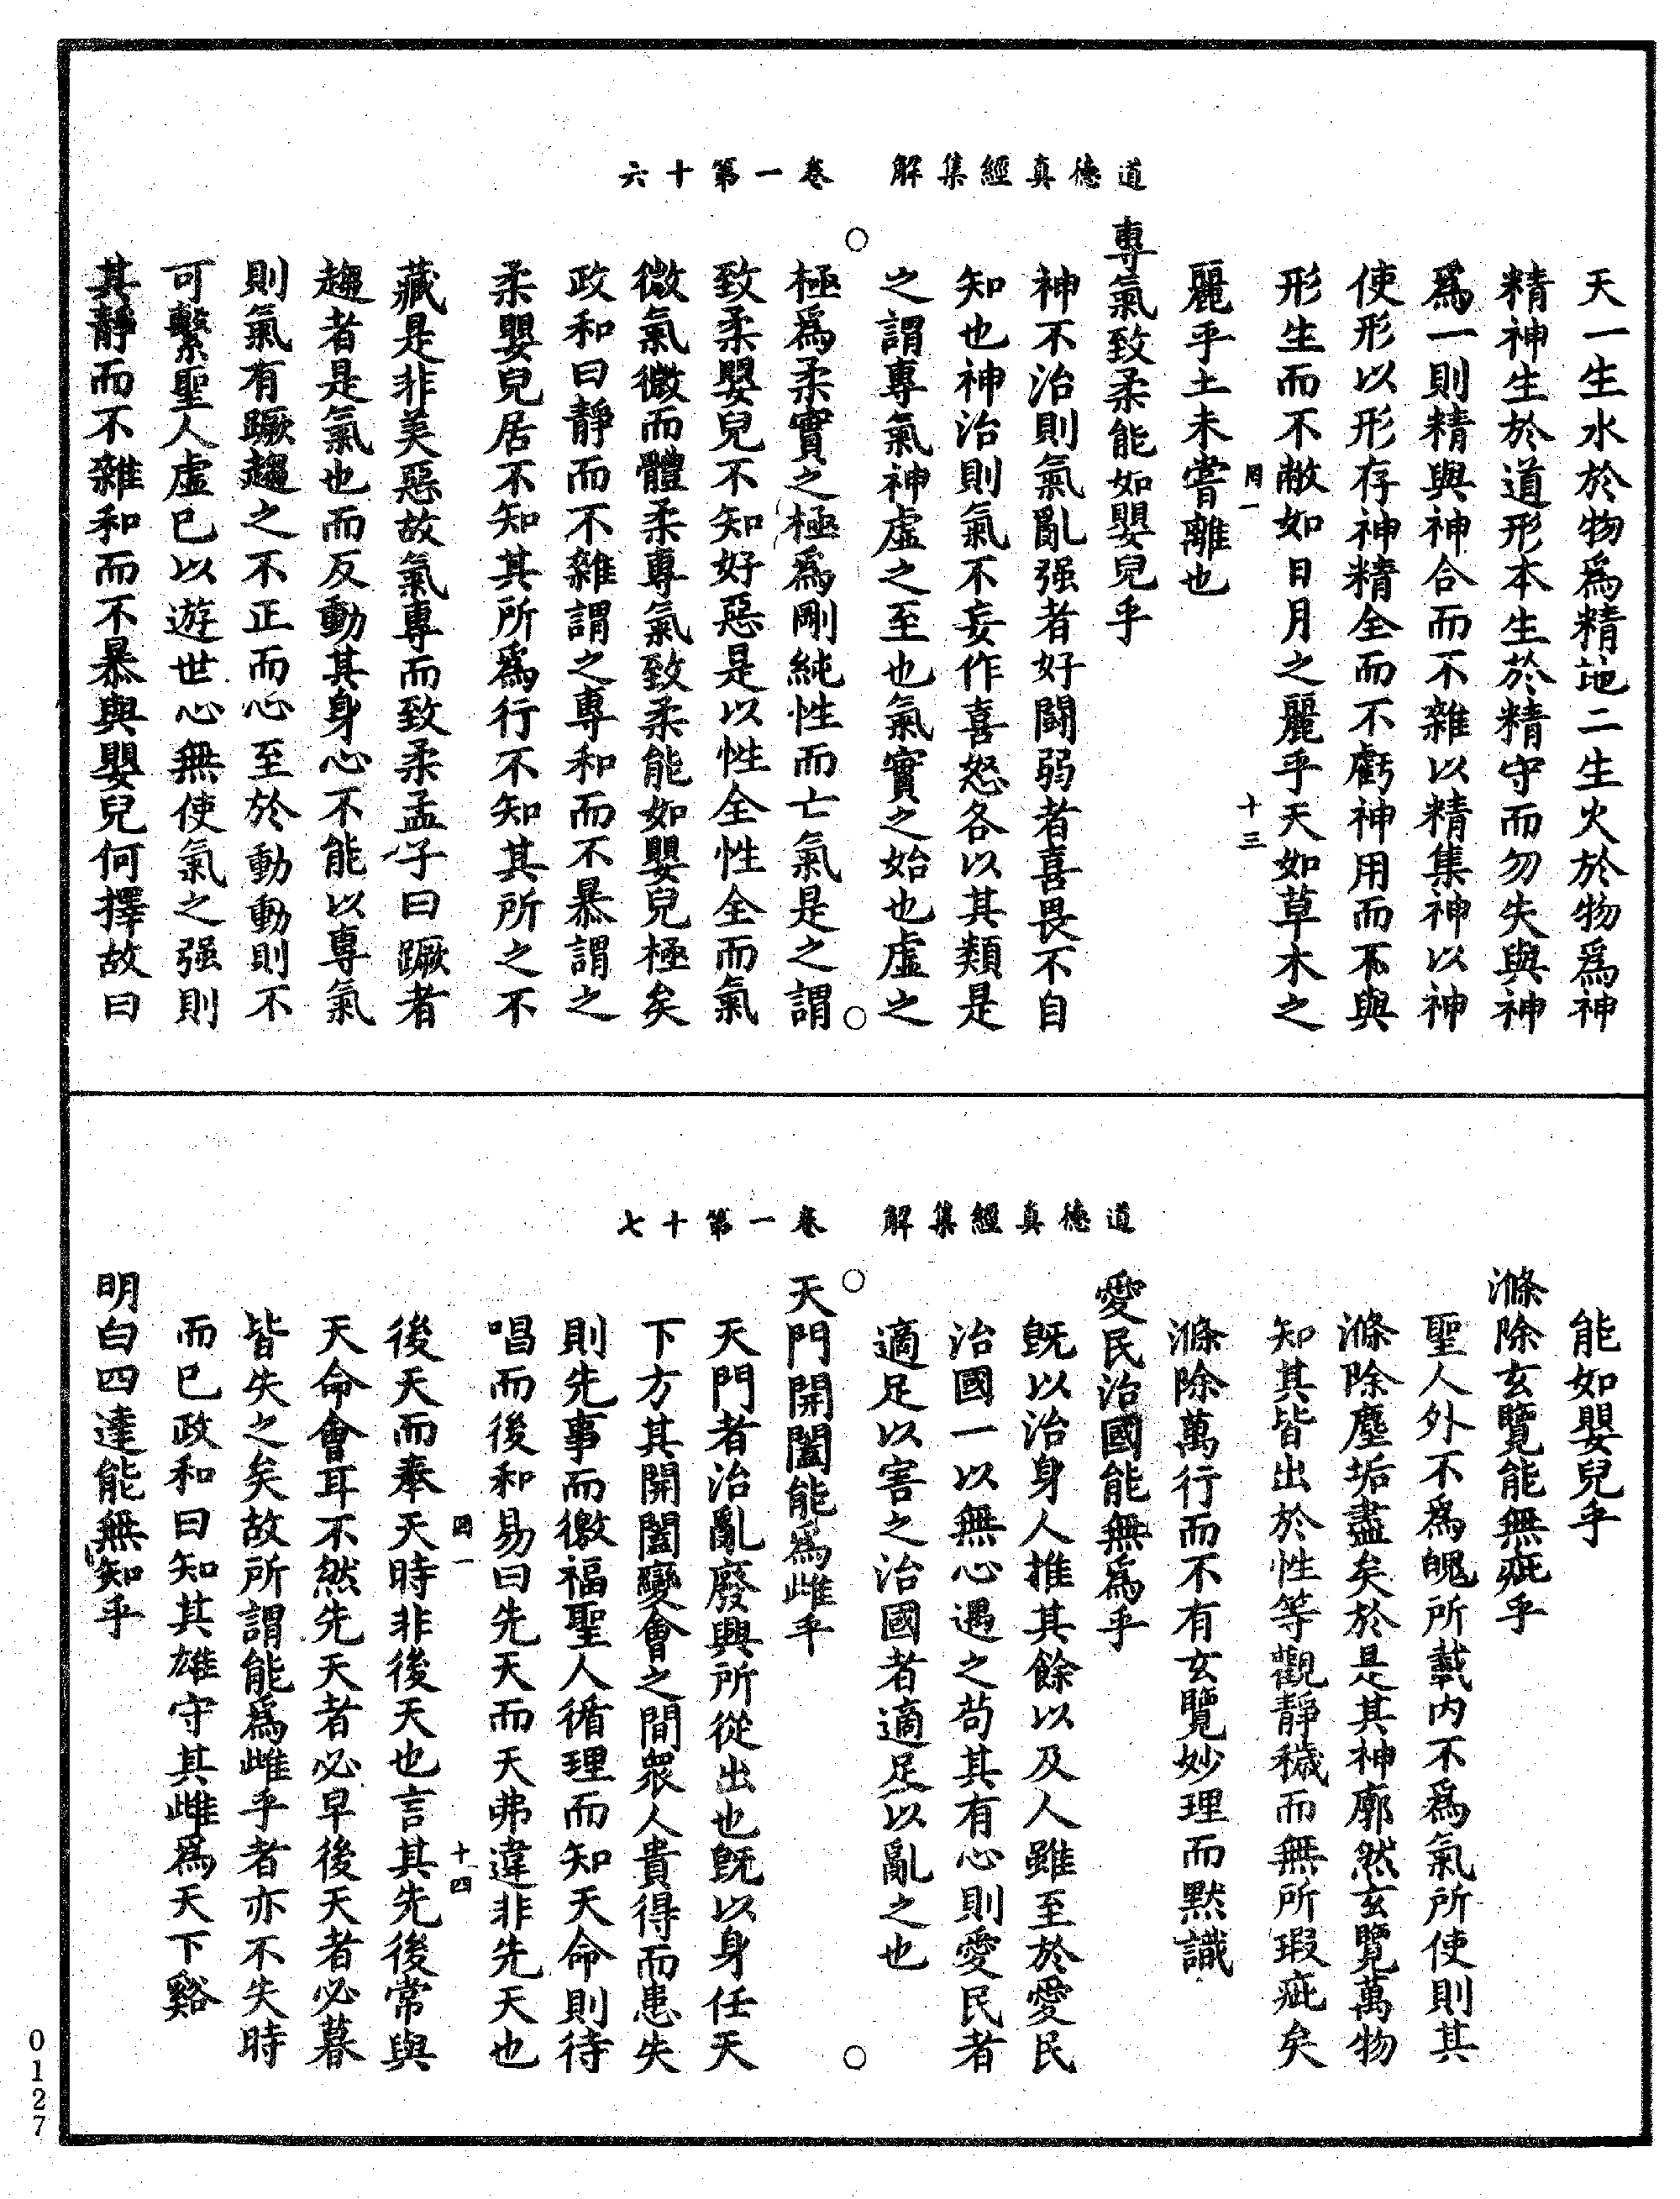 道德真經集解　卷一第十六
天一生水於物爲精地二生火於物爲神
精神生於道形本生於精守而勿失與神
爲一則精與神合而不雜以精集神以神
使形以形存神精全而不虧神用而不與
形生而不敝如日月之麗乎天如草木之
罔一　十三
麗乎土未嘗離也
專氣致柔能如嬰兒乎
神不治則氣亂强者好鬭弱者喜畏不自
知也神治則氣不妄作喜怒各以其類是
之謂專氣神虛之至也氣實之始也虛之
極爲柔實之極爲剛純性而亡氣是之謂
致柔嬰兒不知好惡是以性全性全而氣
微氣微而體柔專氣致柔能如嬰兒極矣
政和曰靜而不雜謂之專和而不暴謂之
柔嬰兒居不知其所爲行不知其所之不
藏是非美惡故氣專而致柔孟子曰蹶者
趨者是氣也而反動其身心不能以專氣
則氣有蹶趨之不正而心至於動動則不
可繫聖人虛已以遊世心無使氣之强則
其靜而不雜和而不暴與嬰兒何擇故曰
道德真經集解　卷一第十七
能如嬰兒乎
滌除玄覽能無疵乎
聖人外不爲魄所載内不爲氣所使則其
滌除塵垢盡矣於是其神廓然玄覽萬物
知其皆出於性等觀靜穢而無所瑕疵矣
滌除萬行而不有玄覽妙理而默識
愛民治國能無爲乎
旣以治身人推其餘以及人雖至於愛民
治國一以無心遇之苟其有心則愛民者
適足以害之治國者適足以亂之也
天門開闔能爲雌乎
天門者治亂廢興所從出也旣以身任天
下方其開闔變會之間衆人貴得而患失
則先事而徼福聖人循理而知天命則待
唱而後和易曰先天而天弗違非先天也
罔一　十四
後天而奉天時非後天也言其先後常與
天命會耳不然先天者必早後天者必暮
皆失之矣故所謂能爲雌乎者亦不失時
而已政和曰知其雄守其雌爲天下谿
明白四達能無知乎
0127